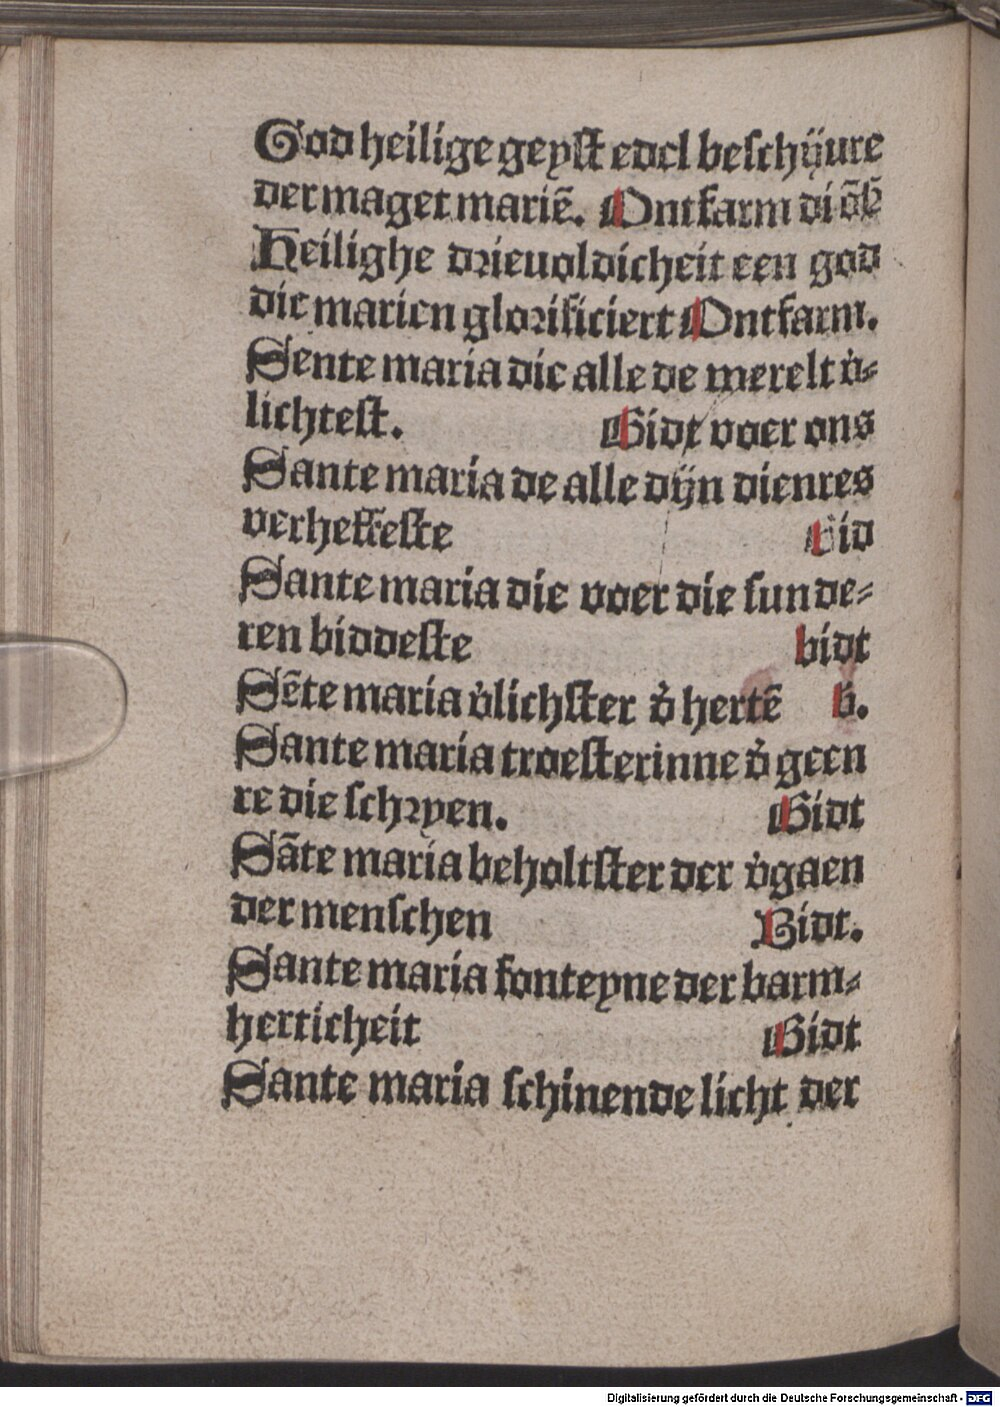 God heilige geyst edel beschÿure
der maget mariē. Ontfarm di ōs̄
Heilighe drieuoldicheit een god
die marien glorificiert Ontfarm.
Sente maria die alle de werelt v̓-
lichtest. Bidt voer ons
Sante maria de alle dÿn dienres
verheffeste Bid
Sante maria die voer die sunde-
ren biddeste bidt
Sēte maria v̓lichster d̓ hertē b.
Sante maria troesterinne d̓ geen
re die schryen. Bidt
Sāte maria beholtster der v̓gaen
der menschen Bidt.
Sante maria fonteyne der barm-
herticheit Bidt
Sante maria schinende licht der
Digitalisierung gefördert durch die Deutsche Forschungsgemeinschaft - DFG